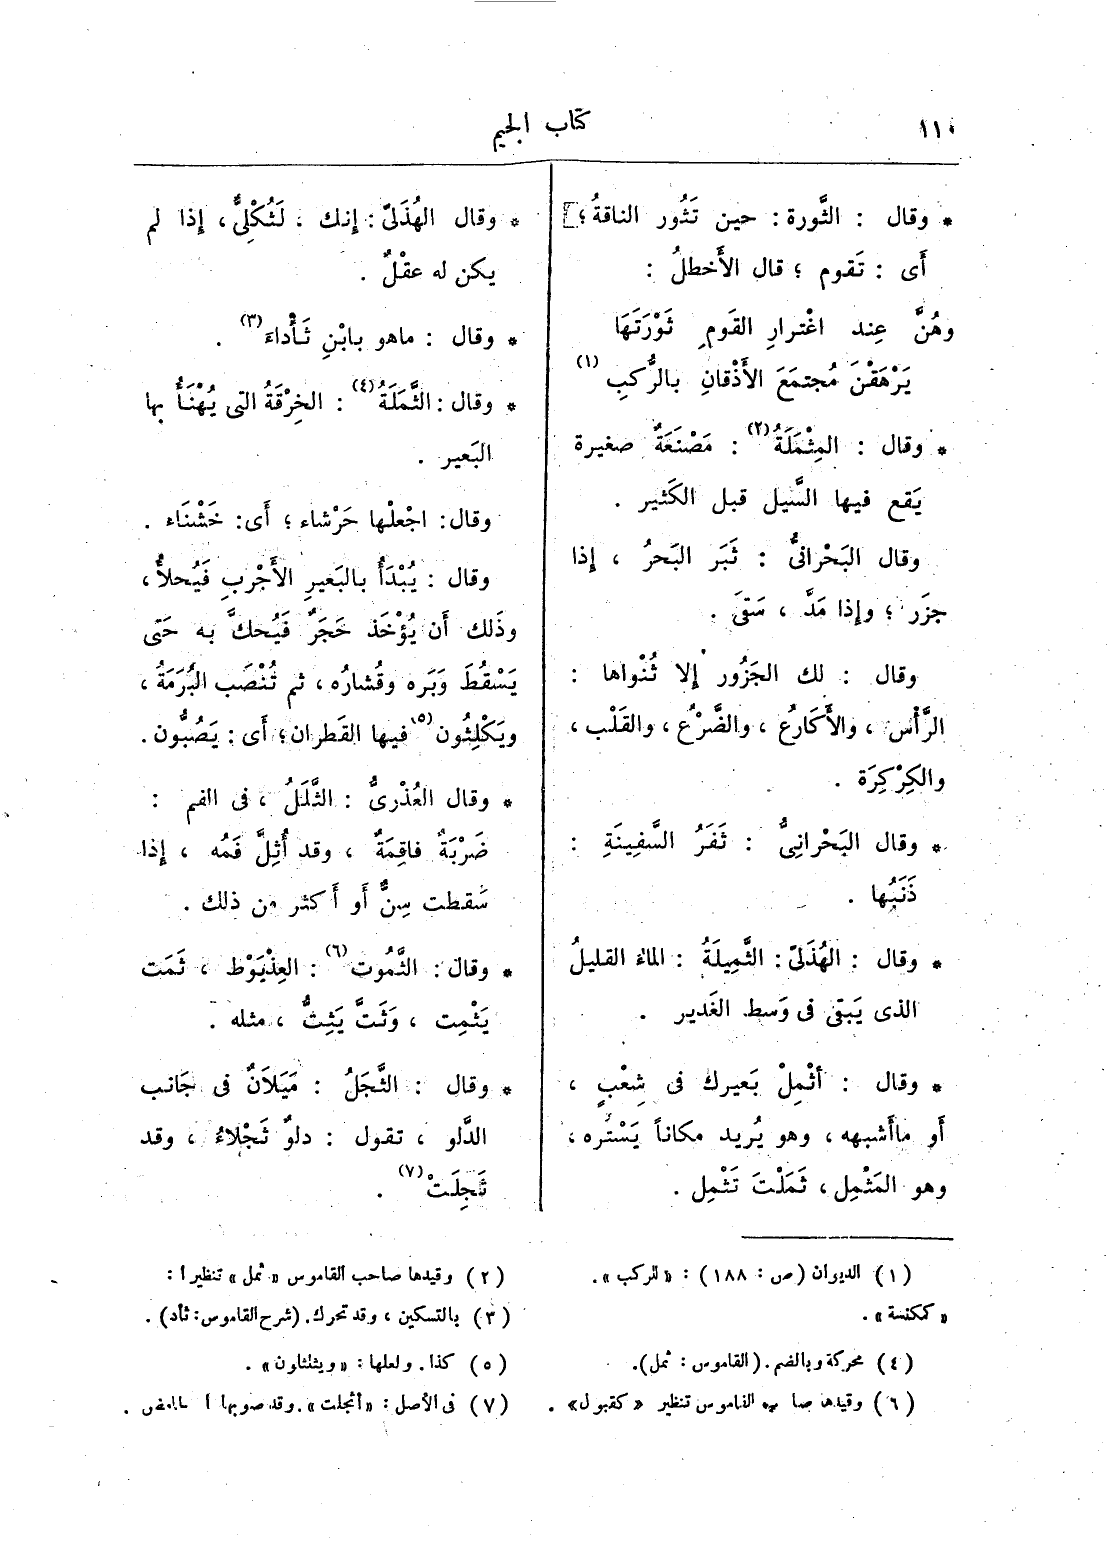 ١١٠
كتاب الجيم
* وقال : الثَّورة : حين تَثُور الناقةُ ؛
أَى : تَقوم ؛ قال الأَخطلُ :
وهُنَّ عِند اغْترارِ القَومِ ثَوْرَتَهَا
يَرْهَقْنَ مُجتمَعَ الأَذْقانِ بالرُّكبِ (١)
* وقال : المِثْمَلَةُ (٢) : مَصْنَعَةٌ صغيرة
يَقع فيها السَّيل قبل الكَثير .
وقال البَحْرانىُّ : ثَبَر البَحرُ ، إذا
جزَر ؛ وإذا مَدَّ ، سَقَى .
وقال : لك الجَزُور إلا ثُنْواها :
الرَّأْس ، والأَكَارُع ، والضَّرْع ، والقَلْب ،
والكِرْكِرَة .
* وقال البَحْرانِىُّ : ثَفَرُ السَّفِينَةِ :
ذَنَبُها .
* وقال : الهُذَلىّ : الثَّمِيلَةُ : الماءُ القليلُ
الذى يَبقى فى وَسط الغَدير .
* وقال : أثْمِلْ بَعيرك فى شِعْبٍ ،
أَو ماأَشبهه ، وهو يُريد مكاناً يَسْتُره ،
وهو المَثْمِل ، ثَمَلْتَ تَثْمِل .
* وقال الهُذَلىّ : إنك ، لَثُكْلِىٌّ ، إذا لم
يكن له عقْلٌ .
* وقال : ماهو بابْنِ ثَأْداءَ (٣) .
* وقال : الثَّمَلَةُ (٤) : الخِرْقَةُ التى يُهْنَأُ بها
البَعير .
وقال : اجْعلْها حَرْشاء ؛ أَى : خَشْنَاء .
وقال : يُبْدَأُ بالبَعيرِ الأَجْربِ فَيُحلأُ ،
وذَلك أَن يُؤْخَذ حَجَرٌ فَيُحكّ به حَتى
يَسْقُطَ وَبَره وقُشارُه ، ثم تُنْصَب البُرْمَةُ ،
ويَكْلِثُون (٥) فيها القَطران ؛ أَى : يَصُبُّون .
* وقال العُذْرىُّ : الثَّلَلُ ، فى الفم :
ضَرْبَةٌ فاقِمَةٌ ، وقد أُثِلَّ فَمُه ، إذا
سَقطت سِنٌّ أَو أَكثر من ذلك .
* وقال : الثَّمُوت (٦) : العِذْيَوْط ، ثَمَت
يَثْمِت ، وَثَتَّ يَثِتُّ ، مثله .
* وقال : الثَّجَلُ : مَيَلَانٌ فى جَانب
الدَّلو ، تقول : دلوٌ ثَجْلاءُ ، وقد
ثَجِلَتْ (٧) .
(١) الديوان (ص : ١٨٨) : «للركب» .
(٢) وقيدها صاحب القاموس « ثمل » تنظيرا :
« كمكنسة » .
(٣) بالتسكين ، وقد تحرك . (شرح القاموس : ثأد) .
(٤) محركة وبالضم . (القاموس : ثمل) .
(٥) كذا . ولعلها : «ويثلثاون» .
(٦) وقيدها القاموس تنظير «كقبول» .
(٧) فى الأصل : «أثجلت» . وقد صوبها